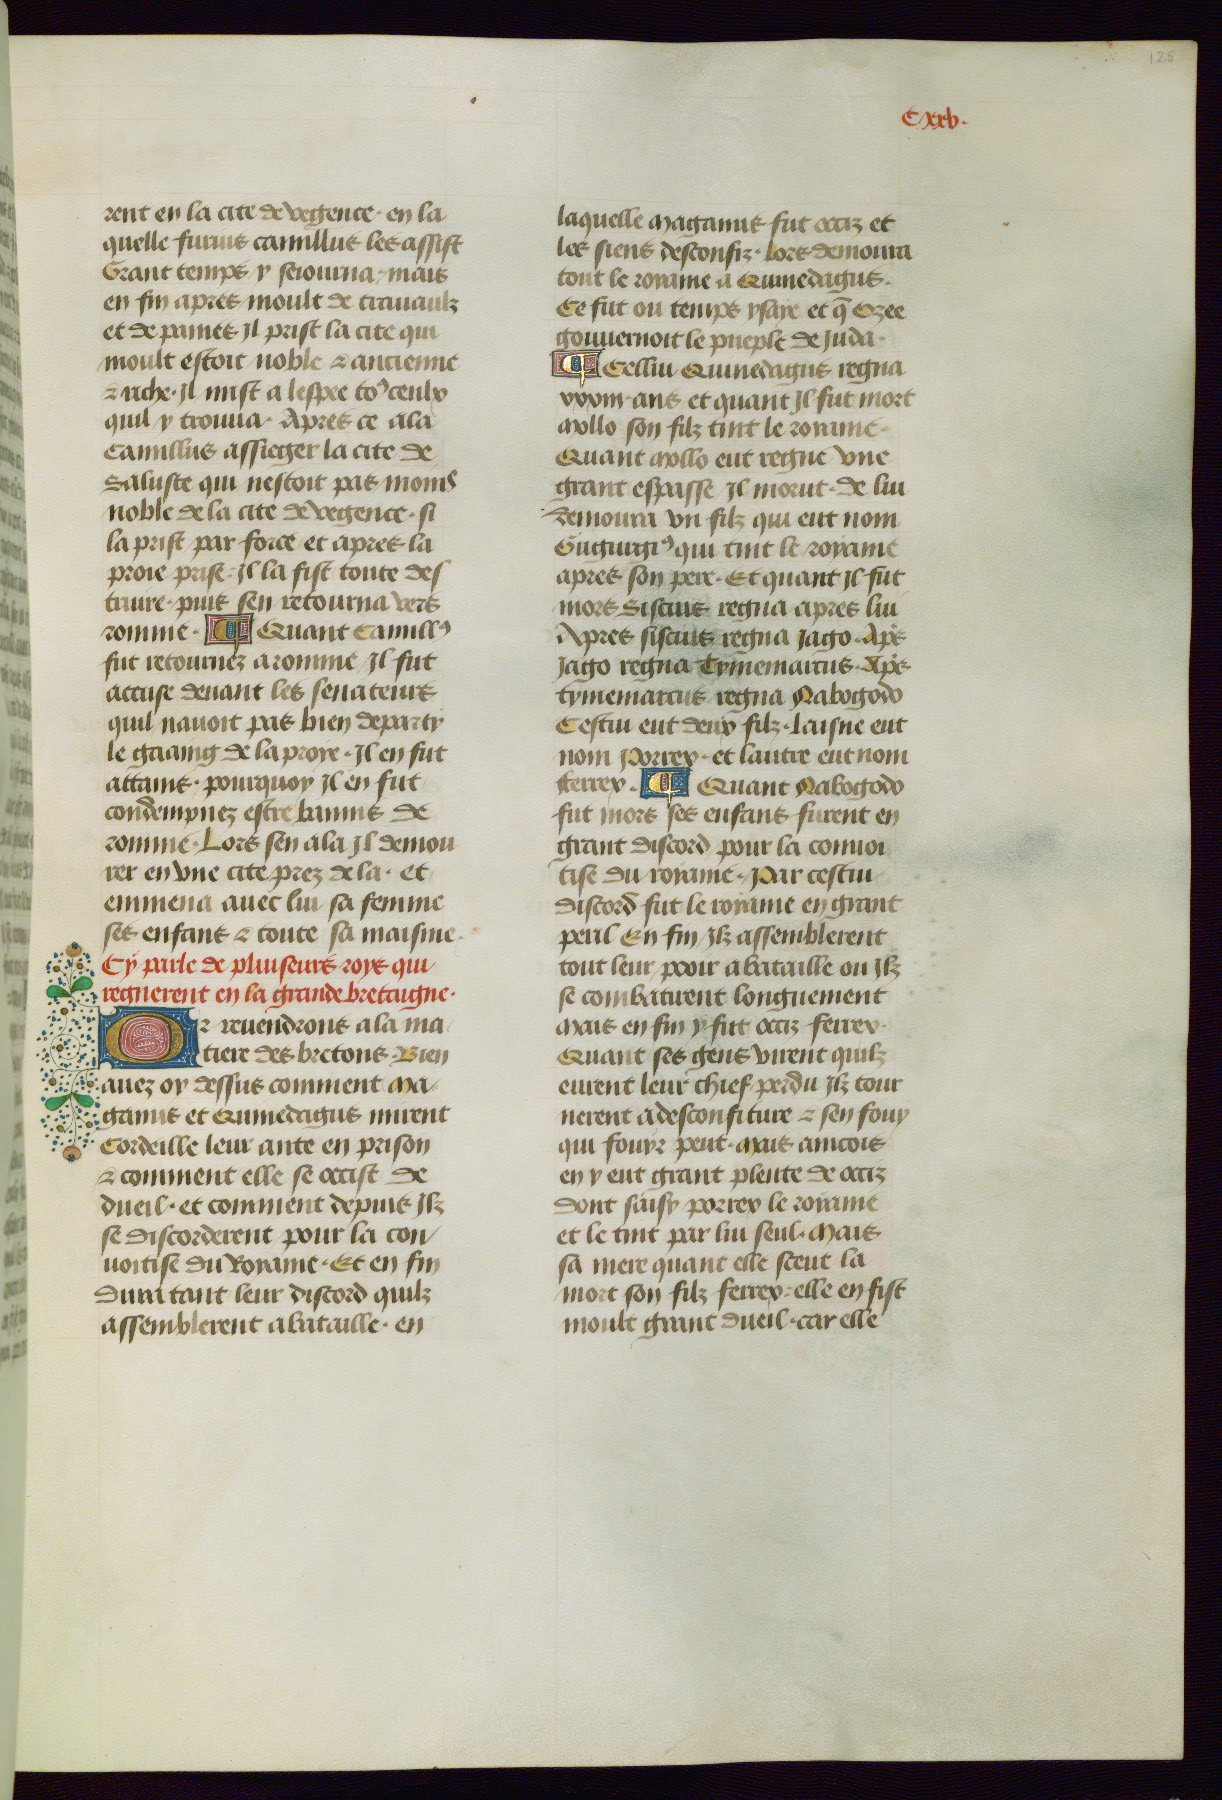 125
Cxxv.
rent en la cite de vegence. en la
quelle furius camillus les assist
Grant temps y seiourna. mais
en fin apres moult de trauaulz
et de paines Jl prist la cite qui
moult estoit noble ⁊ ancienne
⁊ riche. Jl mist a lespee to⁹ ceulx
quil y trouua. Apres ce ala
Camillus assieger la cite de
Saluste qui nestoit pas moins
noble de la cite de vegence. si
la prist par force et apres la
proie prise. Jl la fist toute des
truire. puis sen retourna vers
romme. ¶ Quant Camill⁹
fut retournez a romme Jl fut
accuse deuant les senateurs
quil nauoit pas bien departy
le gaaing de la proye. Jl en fut
attains. pourquoy Jl en fut
condempnez estre bannis de
romme. Lors sen ala Jl demou
rer en vne cite prez de la. et
emmena auec lui sa femme
ses enfans ⁊ toute sa maisnie.
Cy parle de pluiseurs roys qui
regnerent en la grande bretaigne.
Or reuendrons a la ma
tiere des bretons. Bien
auez oy dessus comment Ma/
ganus et Qumedagus mirent
Cordeille leur ante en prison
⁊ comment elle se occist de
dueil. et comment depuis Jlz
se discorderent pour la con/
uoitise du Royame. Et en fin
dura tant leur discord quilz
assemblerent a bataille. en
laquelle Maganus fut occiz et
les siens desconfiz. Lors demoura
tout le royame a Qumedagus.
Ce fut ou temps ysaye et q̄ Ozee
gouuernoit le pueple de Juda.
¶ Cellui Qumedagus regna
xxxiii. ans et quant Jl fut mort
Mollo son filz tint le royame.
Quant Mollo eut regne vne
grant espasse Jl morut. de lui
demoura vn filz qui eut nom
Gugurgi⁹ qui tint le royame
apres son pere. Et quant Jl fut
mors Siscius regna apres lui
Apres siscius regna Jago. Ap̄s
Jago regna Tymemarcus. Ap̄s
tymemarcus regna Nabogodo
Cestui eut deux filz. Laisne eut
nom Porrex. et lautre eut nom
ferrex. ¶ Quant Nabogodo
fut mors ses enfans furent en
grant discord pour la conuoi
tise du royame. Par cestui
discord fut le royame en grant
peril En fin Jlz assemblerent
tout leur pooir a bataille ou Jlz
se combatirent longuement
Mais en fin y fut occiz ferrex.
Quant ses gens virent quilz
eurent leur chief perdu Jlz tour
nerent a desconfiture ⁊ sen fouy
qui fouyr peut. Mais aincois
en y eut grant plente de occiz
dont saisy porrex le royame
et le tint par lui seul. Mais
sa mere quant elle sceut la
mort son filz ferrex. elle en fist
moult grant dueil. car elle